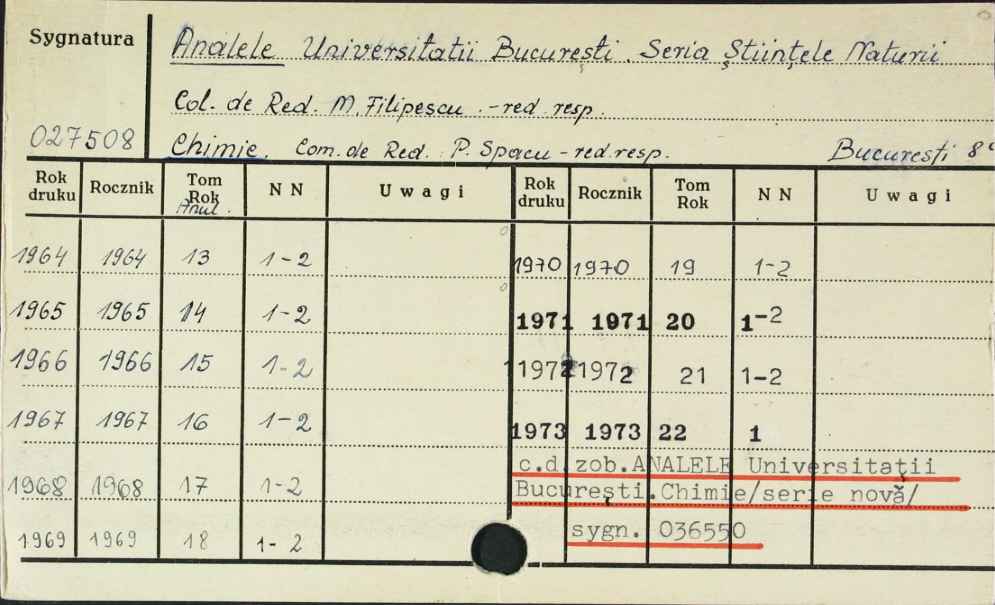 Sygnatura
Analele Universitatii Bucureşti. Seria Ştiinţele Naturii
Col. de Red. M. Filipescu. - red resp.
027508
Chimie. Com. de Red. P. Spacu - red. resp. Bucureşti 8°
Rok druku Rocznik Tom Rok Anul. N N Uwagi Rok druku Rocznik Tom Rok N N Uwagi
1964 1964 13 1-2 1970 1970 19 1-2
1965 1965 14 1-2 1971 1971 20 1-2
1966 1966 15 1-2 1972 1972 21 1-2
1967 1967 16 1-2 1973 1973 22 1
c.d.zob.ANALELE Universitaţii
1968 1968 17 1-2 Bucureşti.Chimie/serie novă/
1969 1969 18 1-2 sygn. 036550